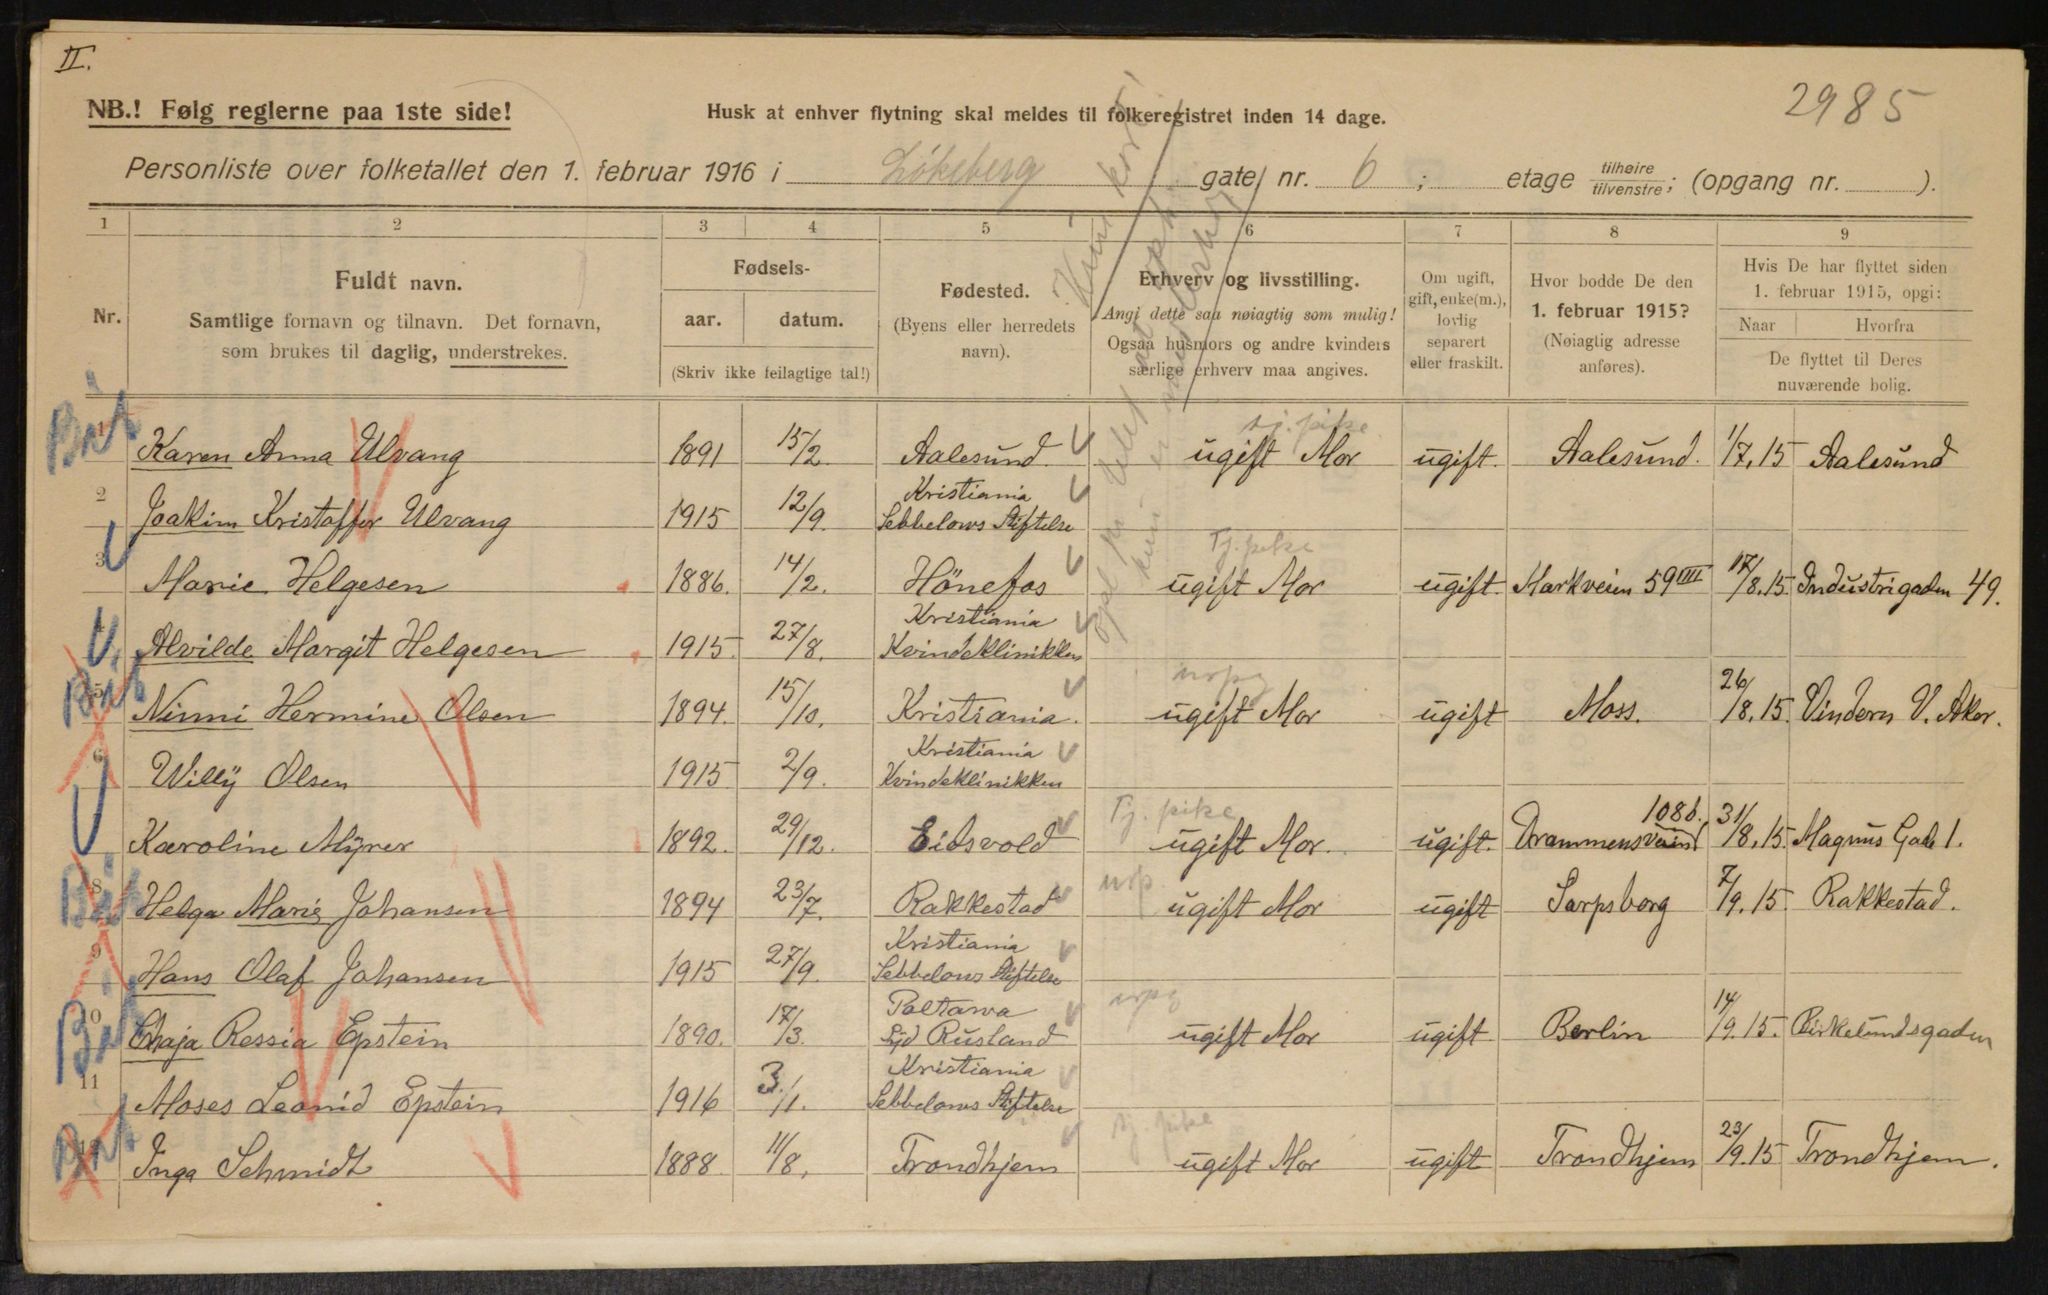 II.
2985
NB.! Følg reglerne paa 1ste side!
Husk at enhver flytning skal meldes til folkeregistret inden 14 dage.
Personliste over folketallet den 1. februar 1916 i Løkeberg gate nr. 6 ; etage tilhøire tilvenstre; (opgang nr. ).
1 2 3 4 5 6 7 8 9
Nr.
Fuldt navn.
Samtlige fornavn og tilnavn. Det fornavn,
som brukes til daglig, understrekes.
Fødsels-
aar. datum.
(Skriv ikke feilagtige tal!)
Fødested.
(Byens eller herredets
navn).
Erhverv og livsstilling.
Angi dette saa nøiagtig som mulig!
Ogsaa husmors og andre kvinders
særlige erhverv maa angives.
Om ugift,
gift, enke(m.),
lovlig
separert
eller fraskilt.
Hvor bodde De den
1. februar 1915?
(Nøiagtig adresse
anføres).
Hvis De har flyttet siden
1. februar 1915, opgi:
Naar Hvorfra
De flyttet til Deres
nuværende bolig.
tj. pike
1 Karen Anna Ulvang 1891 15/2. Aalesund. ugift Mor ugift. Aalesund. 1/7.15 Aalesund
2 Joakim Kristoffer Ulvang 1915 12/9. Kristiania Sebbelows Stiftelse
Tj. pike
3 Marie Helgesen 1886. 14/2. Hönefos ugift Mor ugift. Markveien 59 IIII 17/8.15. Industrigaden 49.
4 Alvilde Margit Helgesen 1915. 27/8. Kristiania Kvindeklinikken
5 Ninni Hermine Olsen 1894. 15/10. Kristiania. ugift Mor ugift Moss. 26/8.15. Vindern V. Aker.
6 Willÿ Olsen 1915 2/9. Kristiania Kvindeklinikken
Tj. pike
Karoline Mÿrer 1892. 29/12. Eidsvold ugift Mor. ugift. Drammensveien 108b. 31/8.15. Magnus Gade 1.
8 Helga Marie Johansen 1894 23/7. Rakkestad ugift Mor ugift Sarpsborg 7/9.15. Rakkestad.
9 Hans Olaf Johansen 1915 27/9. Kristiania Sebbelows Stiftelse
10 Chaja Ressia Epstein 1890. 17/3. Poltawa Syd Rusland ugift Mor ugift Berlin 14/9.15. Birkelundsgaden
11 Moses Leonid Epstein 1916 3/1. Kristiania Sebbelows Stiftelse
tj. pike
12 Inga Schmidt 1888 11/8. Trondhjem ugift Mor ugift Trondhjem 23/9.15 Trondhjem.